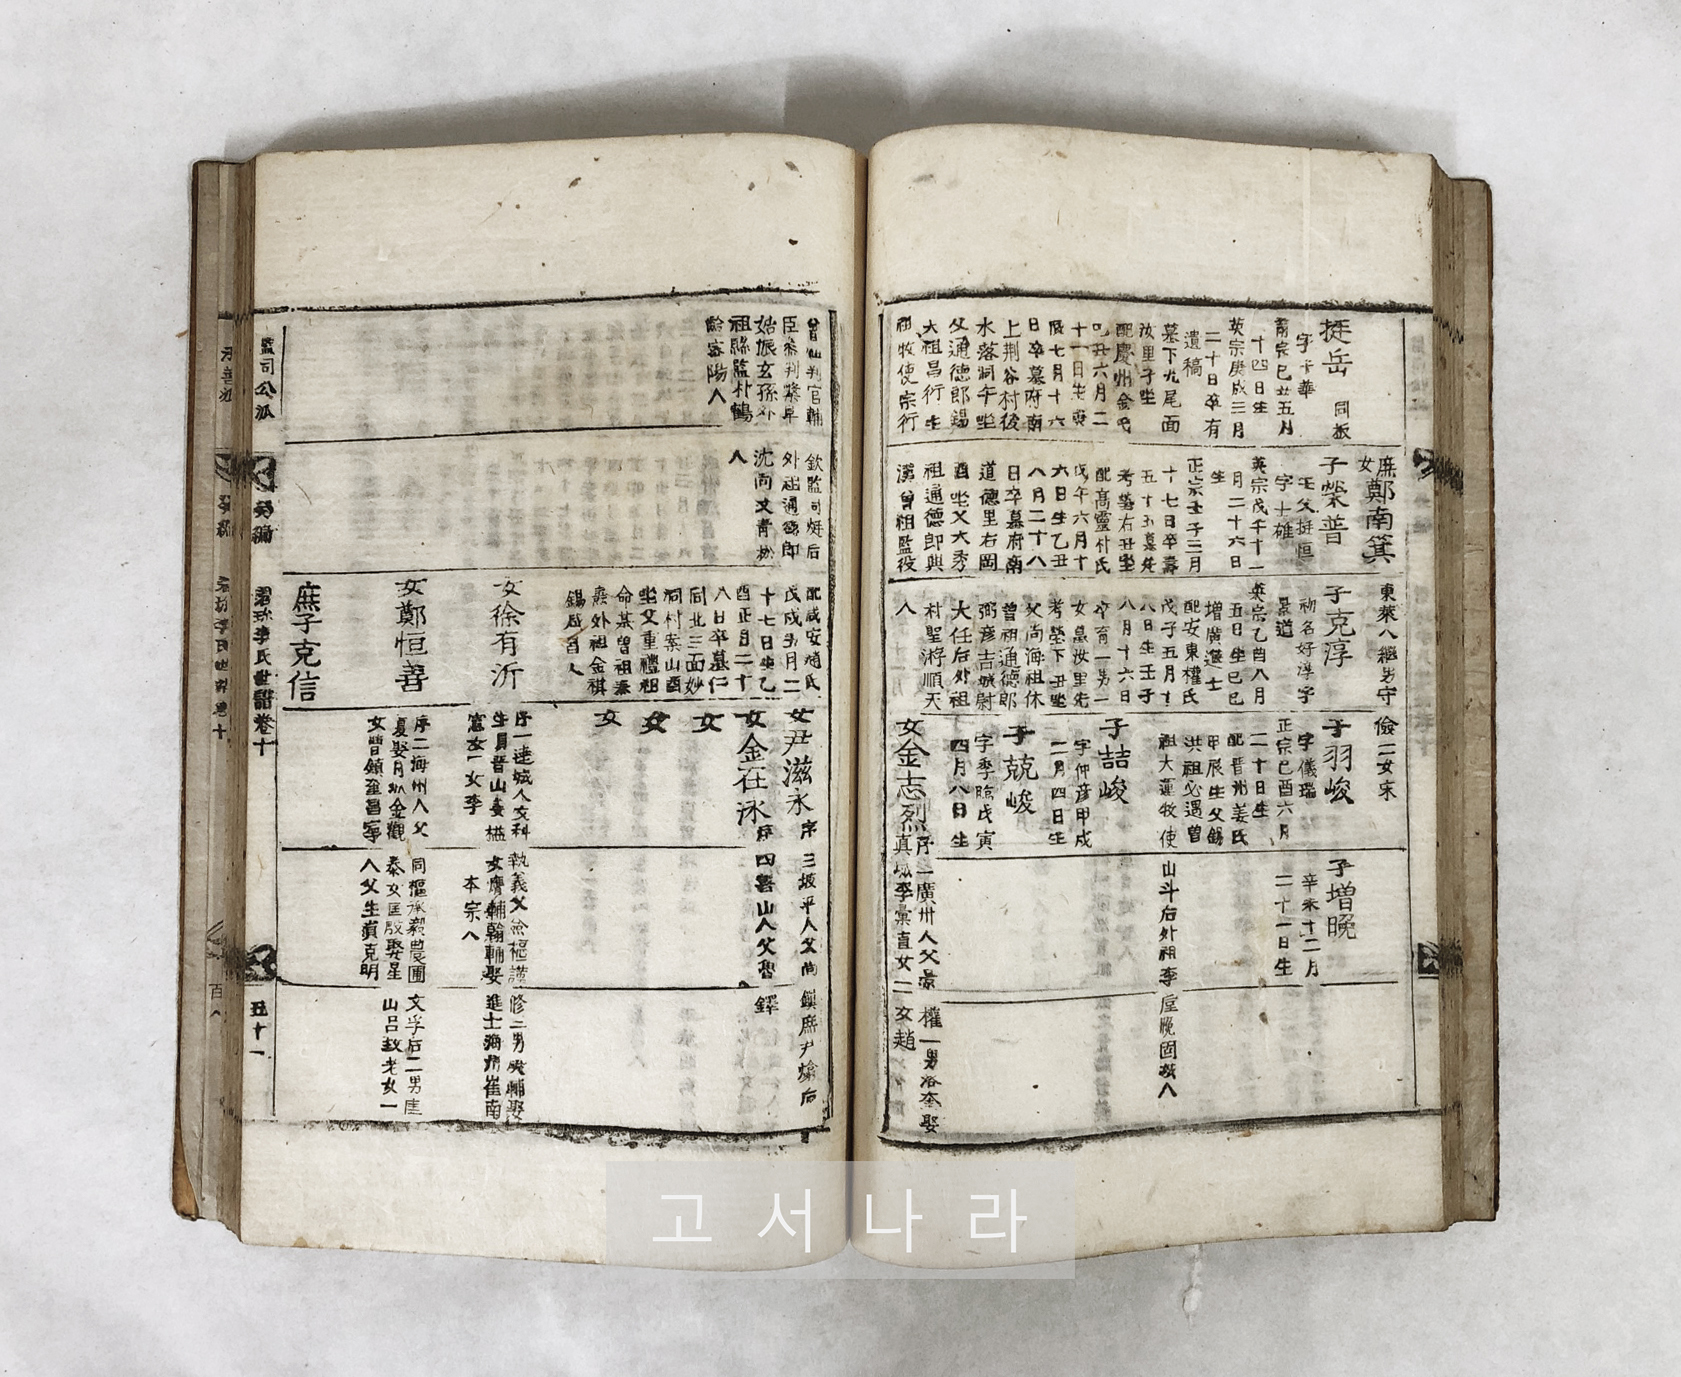 挺岳 同板
字士華
肅宗己丑五月
十四日生
英宗庚戌三月
二十日卒有
遺稿
墓下九尾面
汝里子坐
配慶州金氏
己丑六月二
十一日生庚
辰七月十六
日卒墓府南
上荆谷村後
水落洞午坐
父通德郎錫
大祖昌行生
祖牧使宗行
庶女鄭南箕
子榮普
生父挺恒
字士雄
英宗戊午十一
月二十六日
生
正宗壬子三月
十七日卒壽
五十五墓先
考墓右丑坐
配高靈朴氏
戊午六月十
六日生乙丑
八月二十八
日卒墓府南
道德里右岡
酉坐父大秀
祖通德郎興
漢曾祖監役
東萊人繼男守
子克淳
初名好淳字
景道
英宗乙酉八月
五日生己巳
增廣進士
配安東權氏
戊子五月十
八日生壬子
八月十六日
卒育一男一
女墓汝里先
考塋下丑坐
父尚海祖休
曾祖通德郎
弼彦吉城尉
大任后外祖
村聖游順天
人
儉二女宋
子羽峻
字儀瑞
正宗己酉六月
二十日生
配晋州姜氏
甲辰生父錫
洪祖必遇曾
祖大運牧使
子喆峻
字仲彦甲戌
二月四日生
子兢峻
字季 戊寅
四月八日生
女金志烈
子增晚
辛未十二月
二十一日生
山斗后外祖李
垕晚固城人
序一廣州人父
權一男洛奎娶
真城李彙直女二女趙
曾祖判官輔
臣參判繁卓
始振玄孫外
祖縣監朴鶴
齡密陽人
欽監司珽后
外祖通德郎
沈尚文青松
人
配咸安趙氏
戊戌 月二
十七日生乙
酉正月二十
八日卒墓仁
同北三面妙
洞村案山酉
坐父重禮祖
命基曾祖泰
外祖金祺
錫 昌人
女徐有沂
女鄭恒善
庶子克信
女尹滋永 序
三坡平人父尚
鎮庶尹 后
女金在洙 序
四 山人父魯
鐸
女
女
女
序一達城人文科
執義父 樞
修二男 輔娶
生員晋山姜
女 輔翰輔娶
進士海州崔南
憲女一女李
本宗人
序二海州人父
同樞承毅農圃
文孚后二男匡
夏娶月城金觀
泰女匡殷娶星
山呂 老女一
女曹鎮奎昌寧
人父生員克明
監司公派
努編
君孫李氏世譜卷十
五十一
고서나라